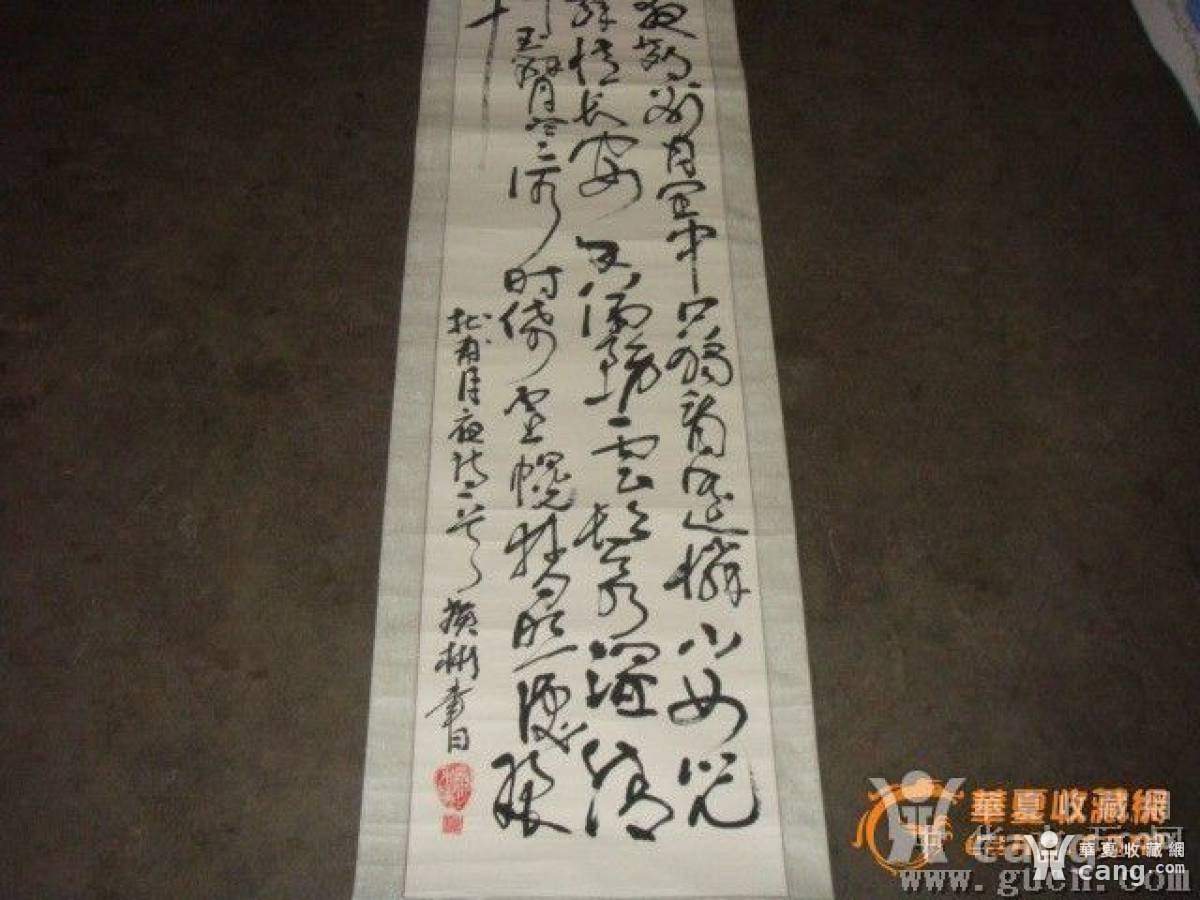 夜鄜州月闺中只獨看遥憐小女兒
解憶长安香霧雲鬟濕清
玉臂寒何时倚虚幌双照淚痕
干
杜甫月夜诗一首 彬書
華夏收藏網
華夏收藏網
cang.com
www.gucn.com